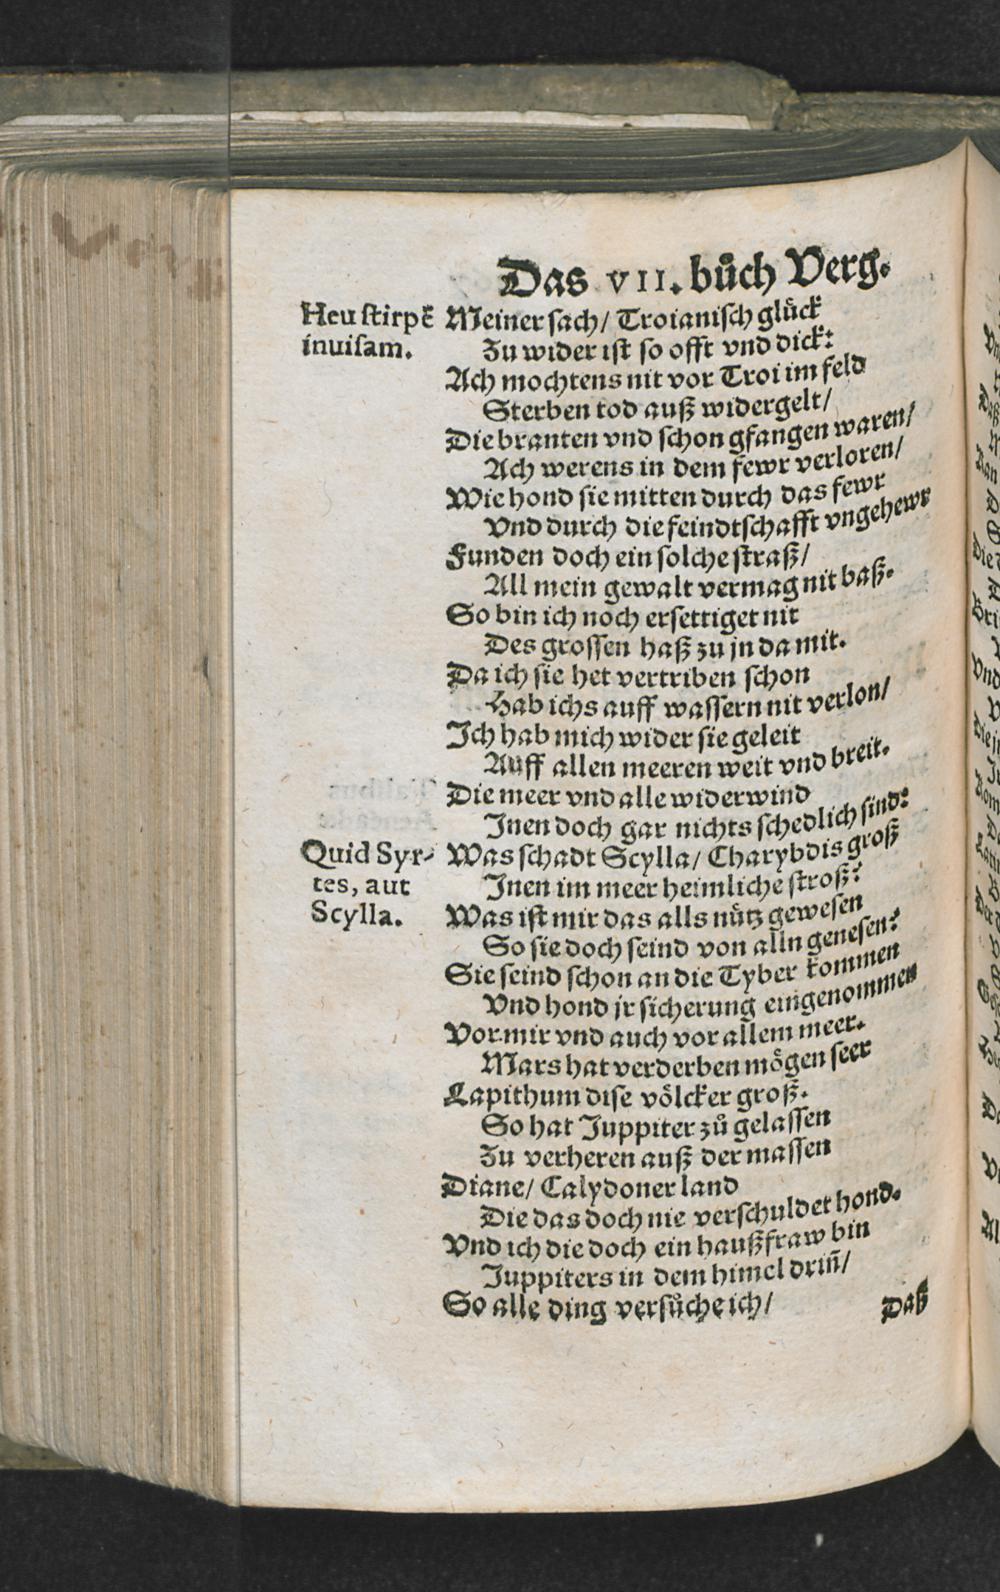 Das VII. bůch Verg.
Heu stirpē
inuisam.
Meiner sach/ Troianisch glück
Zu wider ist so offt vnd dick:
Ach mochtens nit vor Troi im feld
Sterben tod auß widergelt/
Die branten vnd schon gfangen waren/
Ach werens in dem fewr verloren/
Wie hond sie mitten durch das fewr
Vnd durch die feindtschafft vngehewr
Funden doch ein solche straß/
All mein gewalt vermag nit baß.
So bin ich noch ersettiget nit
Des grossen haß zu jn da mit.
Da ich sie het vertriben schon
Hab ichs auff wassern nit verlon/
Ich hab mich wider sie geleit
Auff allen meeren weit vnd breit.
Die meer vnd alle widerwind
Inen doch gar nichts schedlich sind:
Quid Syr-
tes, aut
Scylla.
Was schadt Scylla/ Charybdis groß
Inen im meer heimliche stroß:
Was ist mir das alls nůtz gewesen
So sie doch seind von alln genesen:
Sie seind schon an die Tyber kommen
Vnd hond jr sicherung eingenommen
Vor mir vnd auch vor allem meer.
Mars hat verderben mögen seer
Lapithum dise völcker groß.
So hat Juppiter zů gelassen
Zu verheren auß der massen
Diane/ Calydoner land
Die das doch nie verschuldet hond.
Vnd ich die doch ein haußfraw bin
Juppiters in dem himel drin̄/
So alle ding versůche ich/
Daß